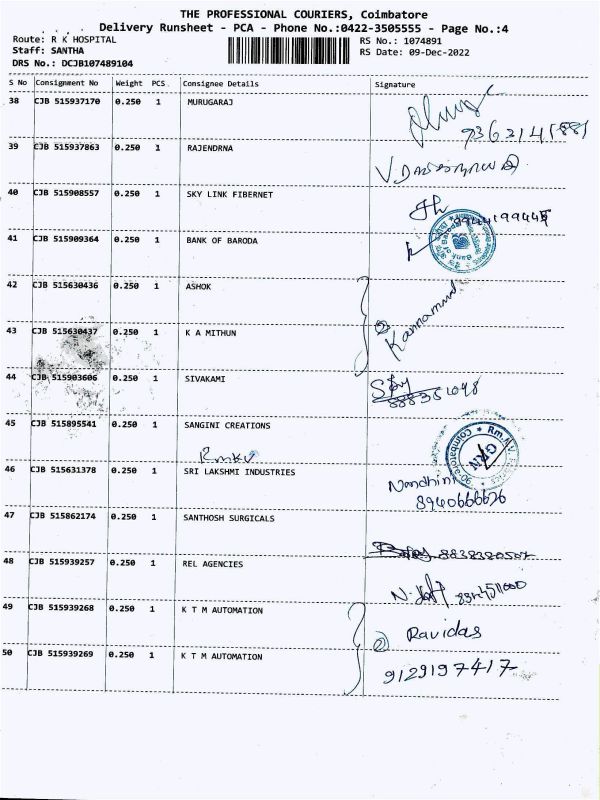 THE PROFESSIONAL COURIERS, Coimbatore
Delivery Runsheet - PCA - Phone No.:0422-3505555 - Page No.:4
Route: R K HOSPITAL RS No.: 1074891
Staff: SANTHA RS Date: 09-Dec-2022
DRS No.: DCJB107489104
S No Consignment No Weight PCS Consignee Details Signature
38 CJB 515937170 0.250 1 MURUGARAJ
39 CJB 515937863 0.250 1 RAJENDRNA
40 CJB 515908557 0.250 1 SKY LINK FIBERNET
41 CJB 515909364 0.250 1 BANK OF BARODA
Bank of Baroda
42 CJB 515630436 0.250 1 ASHOK
43 CJB 515630437 0.250 1 K A MITHUN
2
44 CJB 515903606 0.250 1 SIVAKAMI
45 CJB 515895541 0.250 1 SANGINI CREATIONS
Rmkv
46 CJB 515631378 0.250 1 SRI LAKSHMI INDUSTRIES
Nandhini
8940666626
47 CJB 515862174 0.250 1 SANTHOSH SURGICALS
48 CJB 515939257 0.250 1 REL AGENCIES
49 CJB 515939268 0.250 1 K T M AUTOMATION
2 Ravidas
50 CJB 515939269 0.250 1 K T M AUTOMATION
9129197417